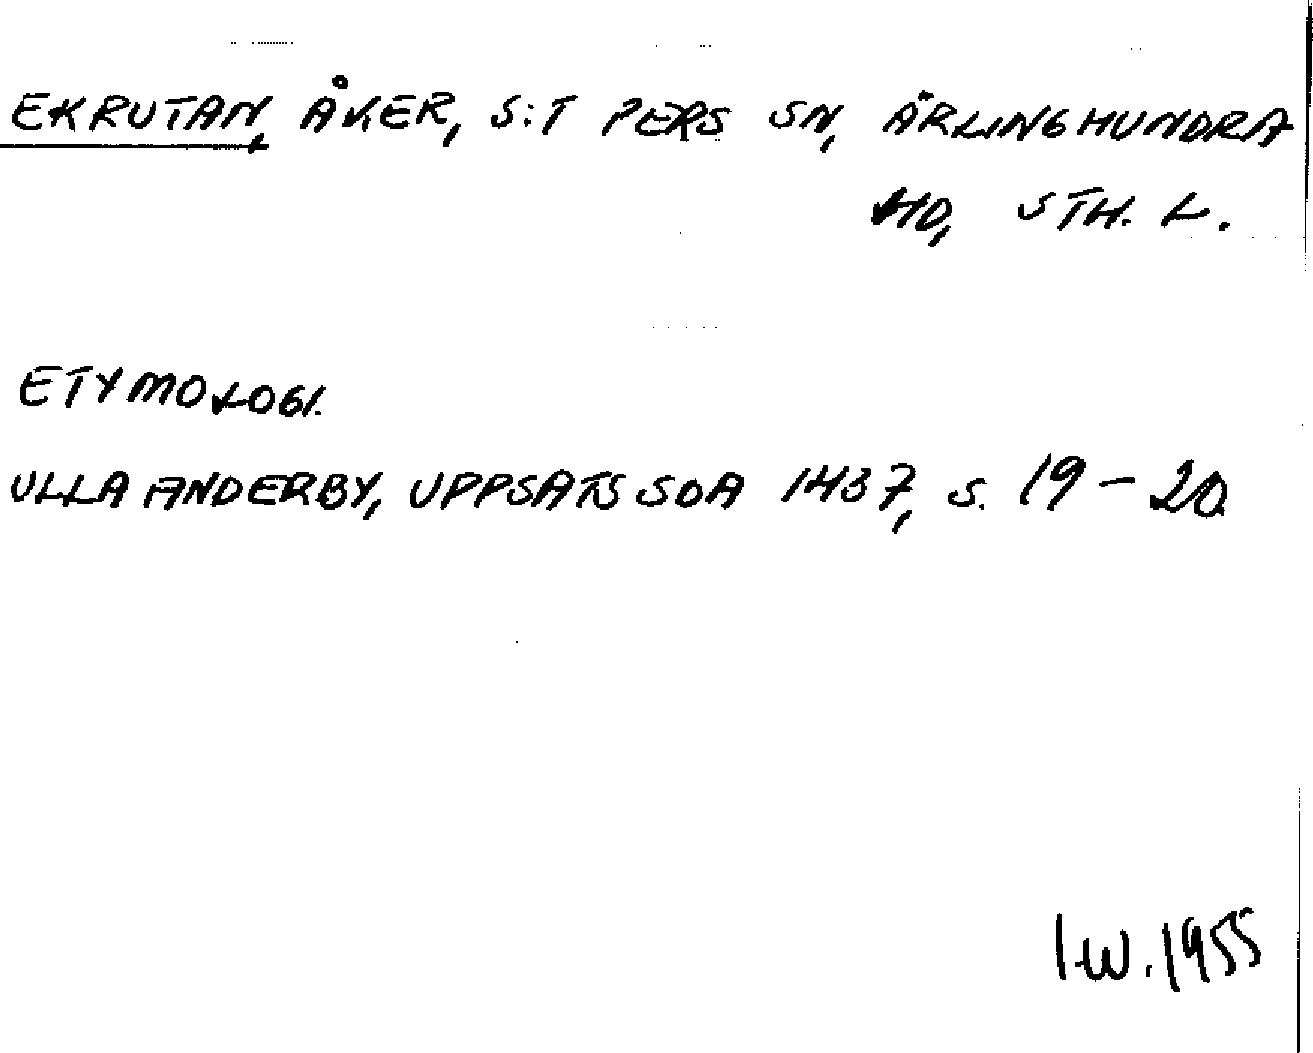 EKRUTAN, ÅKER, S:T PERS SN, ÄRLINGHUNDRA
HD, STH. L.
ETYMOLOGI.
ULLA ANDERBY, UPPSATS SOA 1437, s. 19-20.
I.W. 1955